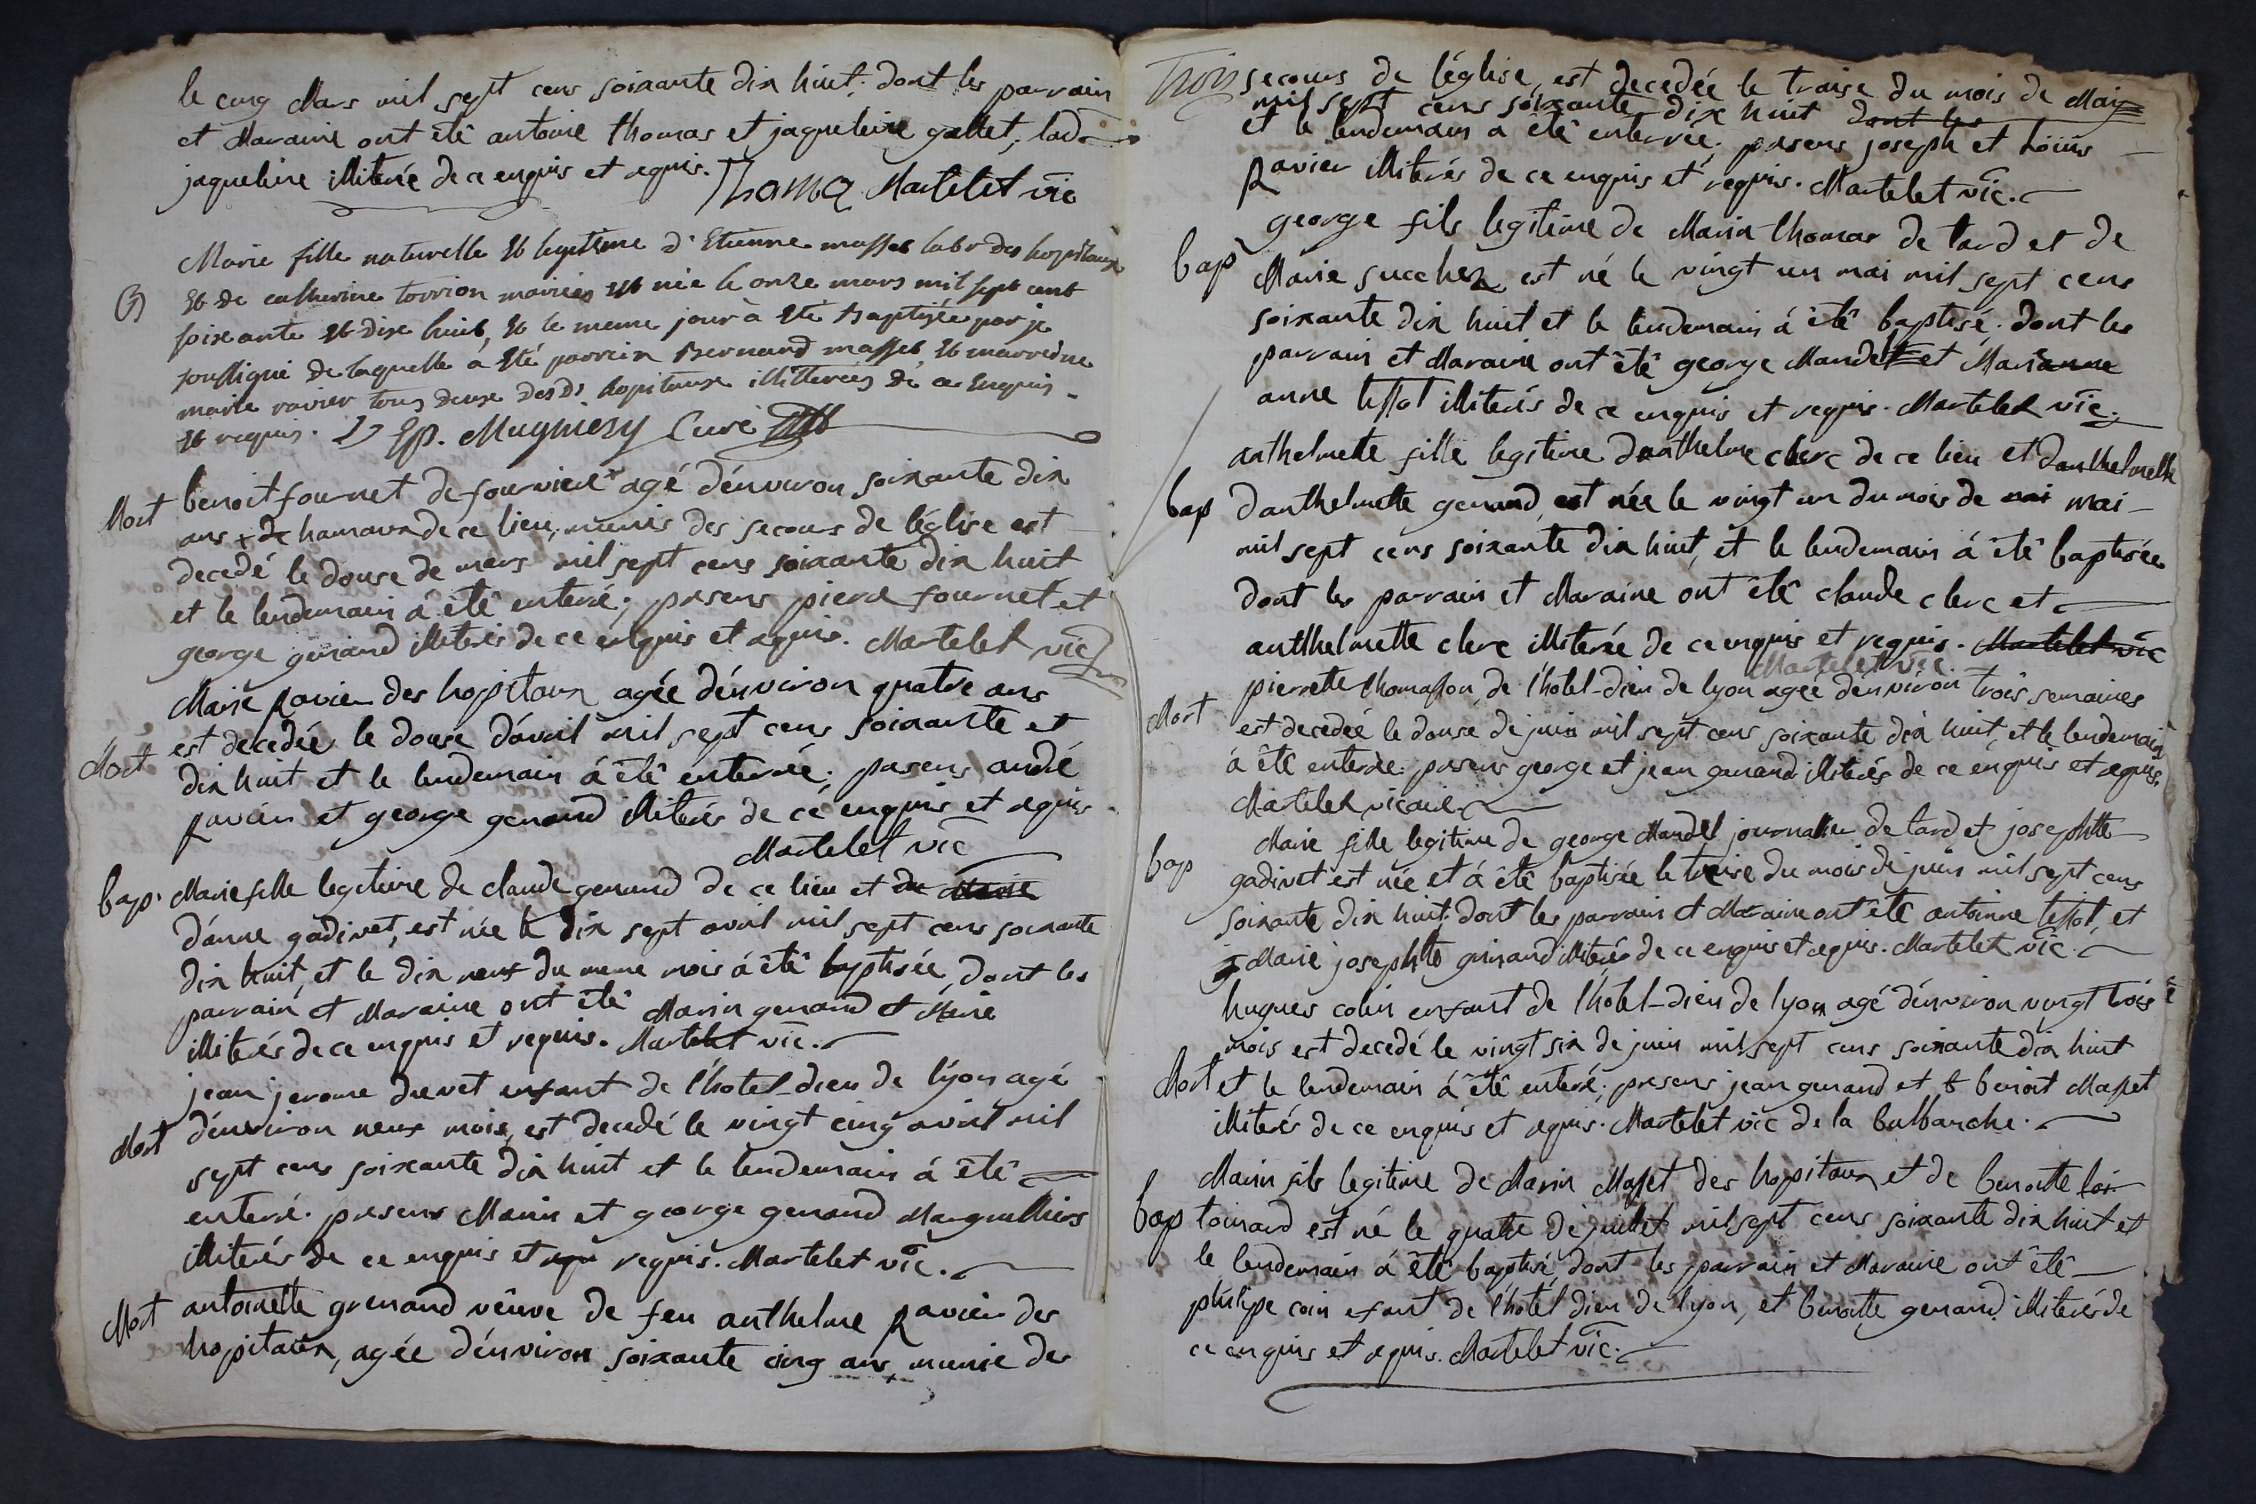 le cinq Mars mil sept cens soixante dix huit; dont les parrain
et Maraine ont êtê antoine thomas et jaqueleine gallet, lad
jaqueleine illiterée de ce enquis et requis. Thoma Martelet vic
Marie fille naturelle et legitime d'Etienne masset labr des hopitaux
et de catherine torrion mariés est née le onze mars mil sept cent
soixante et dix huit, et le meme jour à été Baptizée par je
soussigné de laquelle à été parrein Bernard masset et marreine
marie ravier tous deux desds hopitaux illitterés de ce Enquis
et requis. Mugniery Curé
Mort benoit fournet de fourviere agé dénviron soixante dix
ans + de hamaux de ce lieu, munis des secours de léglise est
decedé le douse de mars mil sept cens soixante dix huit
et le lendemain à êtê enterré; presens piere fournet et
george genand illiterés de ce enquis et requis. Martelet vic
Marie Ravier des hopitaux agée dénviron quatre ans
Mort est decedée le douse dávril mil sept cens soixante et
dix huit et le lendemain á êtê enterrée; presens andré
Ravier et george genand illiterés de ce enquis et requis
Martelet vic
bap. Marie fille legitime de claude genand de ce lieu et de Marie
dánne gadivet, est née le dix sept avril mil sept cens soixante
dix huit, et le dix neuf du meme mois á êtê baptisée, dont les
parrain et Maraine ont êtê Marin genand et Marie
illiterés de ce enquis et requis. Martelet vic.
jean jerome drevet enfant de l'hotel-dieu de lyon agé
Mort dénviron neuf mois, est decedé le vingt cinq avril mil
sept cens soixante dix huit et le lendemain á êtê
enterré. presens Marin et george genand Marguilliers
illiterés de ce enquis et requis. Martelet vic.
Mort antoinette grenand vêuve de feu anthelme Ravier des
hopitaux, agée dénviron soixante cinq ans munie des
Trois secours de léglise, est decedée le traise du mois de May
mil sept cens soixante dix huit dont les
et le lendemain a êtê enterrée; presens joseph et Loüis
Ravier illiterés de ce enquis et requis. Martelet vic.
george fils legitime de Marin thomas de tard et de
bap Marie succhez est né le vingt un mai mil sept cens
soixante dix huit et le lendemain á êtê baptisé. dont les
parrain et Maraine ont êtê george Mandet et Marianne
anne tissot illiterés de ce enquis et requis. Martelet vic.
anthelmette fille legitime danthelme clerc de ce lieu et danthelmette
bap danthelmette genand, est née le vingt un du mois de mai mai
mil sept cens soixante dix huit, et le lendemain á êtê baptisée
dont les parrain et Maraine ont êtê claude clerc et
anthelmette clerc illiterée de ce enquis et requis. Martelet vic
Martelet vic.
pierrette thomasson de l'hotel-dieu de lyon agée dénviron trois semaines
Mort est decedée le douse de juin mil sept cens soixante dix huit, et le lendemain
á êtê enterrée. presens george et jean genand illiterés de ce enquis et requis.
Martelet vicaire
Marie fille legitime de george Mandet journalier de tard et josephtte
bap gadivet est née et á êtê baptisée le treise du mois de juin mil sept cens
soixante dix huit. dont les parrain et Maraine ont êtê antoinne tissot, et
Marie josephtte genand illiterés de ce enquis et requis. Martelet vic.
hugues colin enfant de l'hotel-dieu de lyon agé dénviron vingt trois
mois est decedé le vingt six de juin mil sept cens soixante dix huit
Mort et le lendemain á êtê enterré; presens jean genand et benoit Masset
illiterés de ce enquis et requis. Martelet vic de la balbanche.
Marin fils legitime de Marin Masset des hopitaux et de benoitte
bap toinard est né le quatre de juillet mil sept cens soixante dix huit et
le lendemain á êtê baptisé dont les parrain et Maraine ont êtê
philipe coin efant de l'hotel dieu de lyon, et benoitte genand illiterés de
ce enquis et requis. Martelet vic.